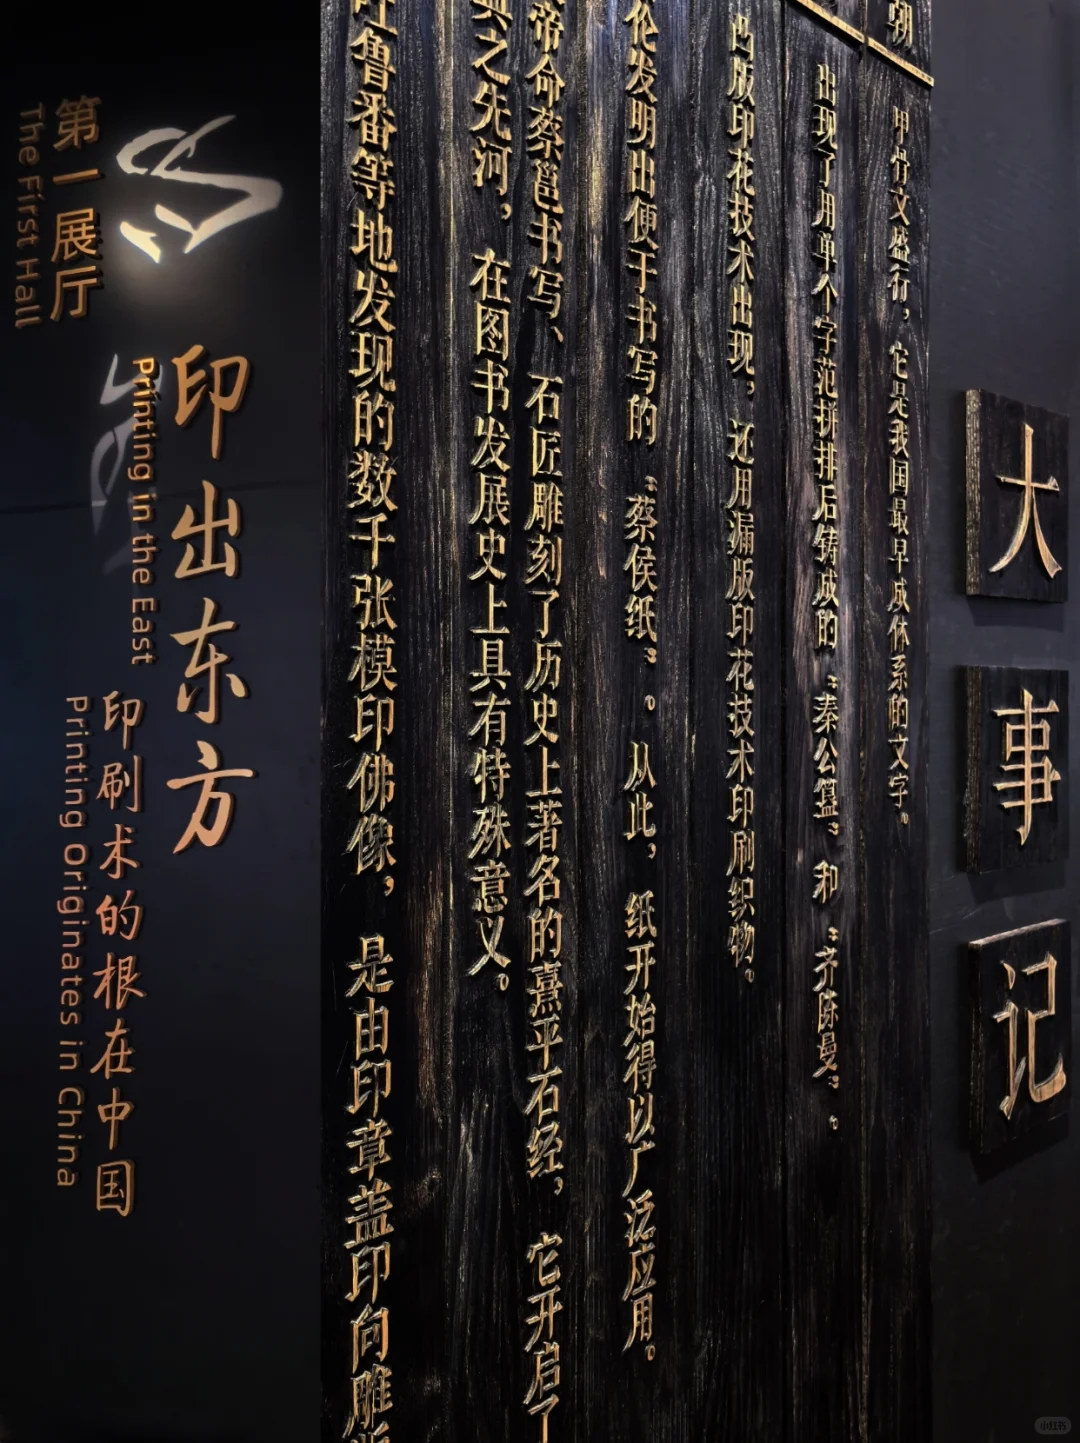 大事记
朝
甲骨文盛行，它是我国最早成体系的文字。
出现了用单个字范拼排后铸成的“秦公簋”和“齐陈曼”。
凸版印花技术出现，还用漏版印花技术印刷织物。
伦发明出便于书写的“蔡侯纸”。从此，纸开始得以广泛应用。
帝命蔡邕书写、石匠雕刻了历史上著名的熹平石经，它开启了
典之先河，在图书发展史上具有特殊意义。
鲁番等地发现的数千张模印佛像，是由印章盖印向雕
第一展厅
The First Hall
印出东方
Printing in the East
印刷术的根在中国
Printing Originates in China
小红书